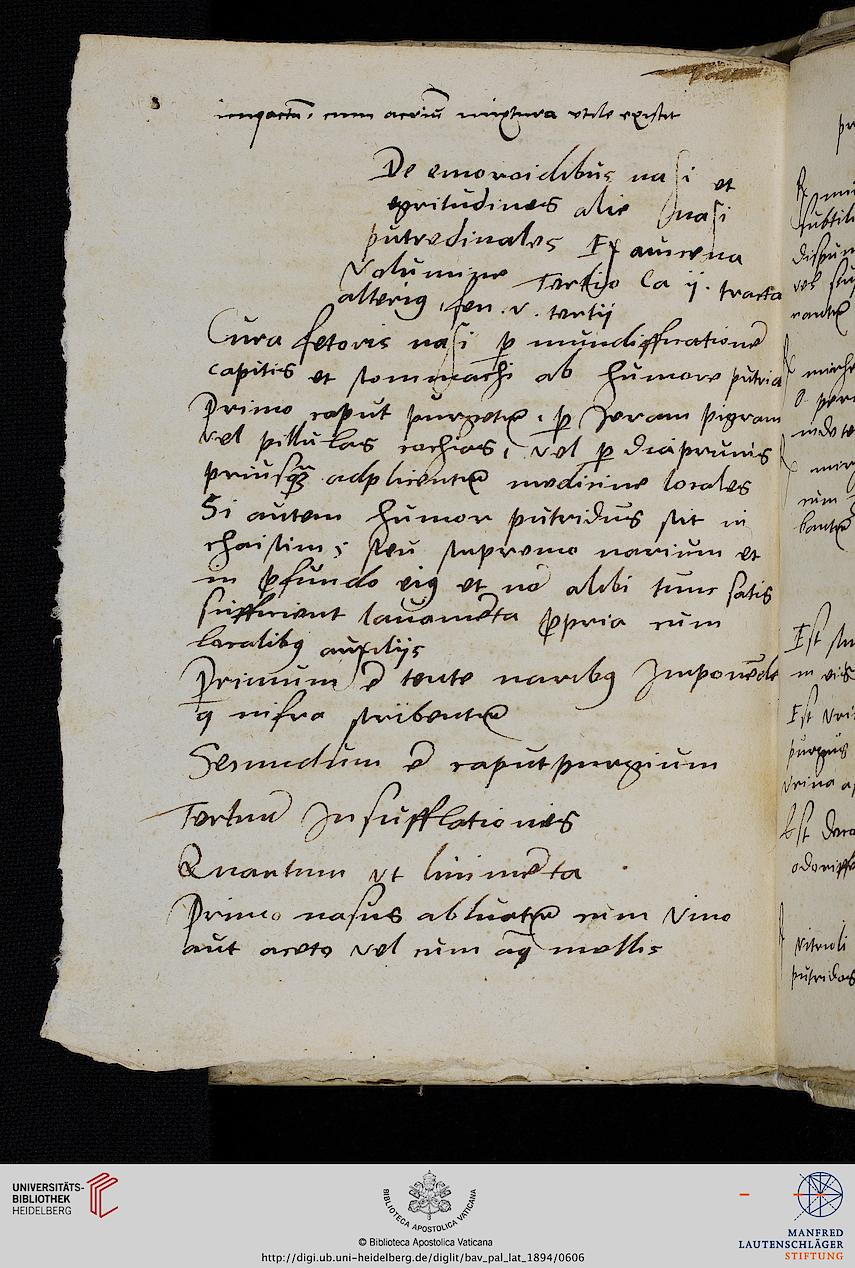 impactū. cum acriū mixtura utile existit
De emoroidibus nasi et
egritudines alie nasi
putredinales Ex auicena
Volumine Tertio Ca ij. tracta
alterius, fen. v. tertij
Cura fetoris nasi p mundifficationē
capitis et stommachi ab humore putrid
Primo caput purgetur. p Jeram pigram
vel pillulas cochias, vel p diaprunis
priusqȝ adplicentur medicine locales
Si autem humor putridus sit in
supremo narium et
in pfundo eius et nō alibi tunc satis
sufficient lauamēta ppria cum
localibus auxilijs
Primum ē tente naribus Imponēde
q infra scribentur
Secundum ē caputpurgium
Tertiū Insufflationes
Quartum ut linimēta
Primo nasus abluatur cum vino
aut aceto vel cum aq mellis
UNIVERSITÄTS-
BIBLIOTHEK
HEIDELBERG
BIBLIOTECA APOSTOLICA VATICANA
© Biblioteca Apostolica Vaticana
http://digi.ub.uni-heidelberg.de/diglit/bav_pal_lat_1894/0606
MANFRED
LAUTENSCHLÄGER
STIFTUNG